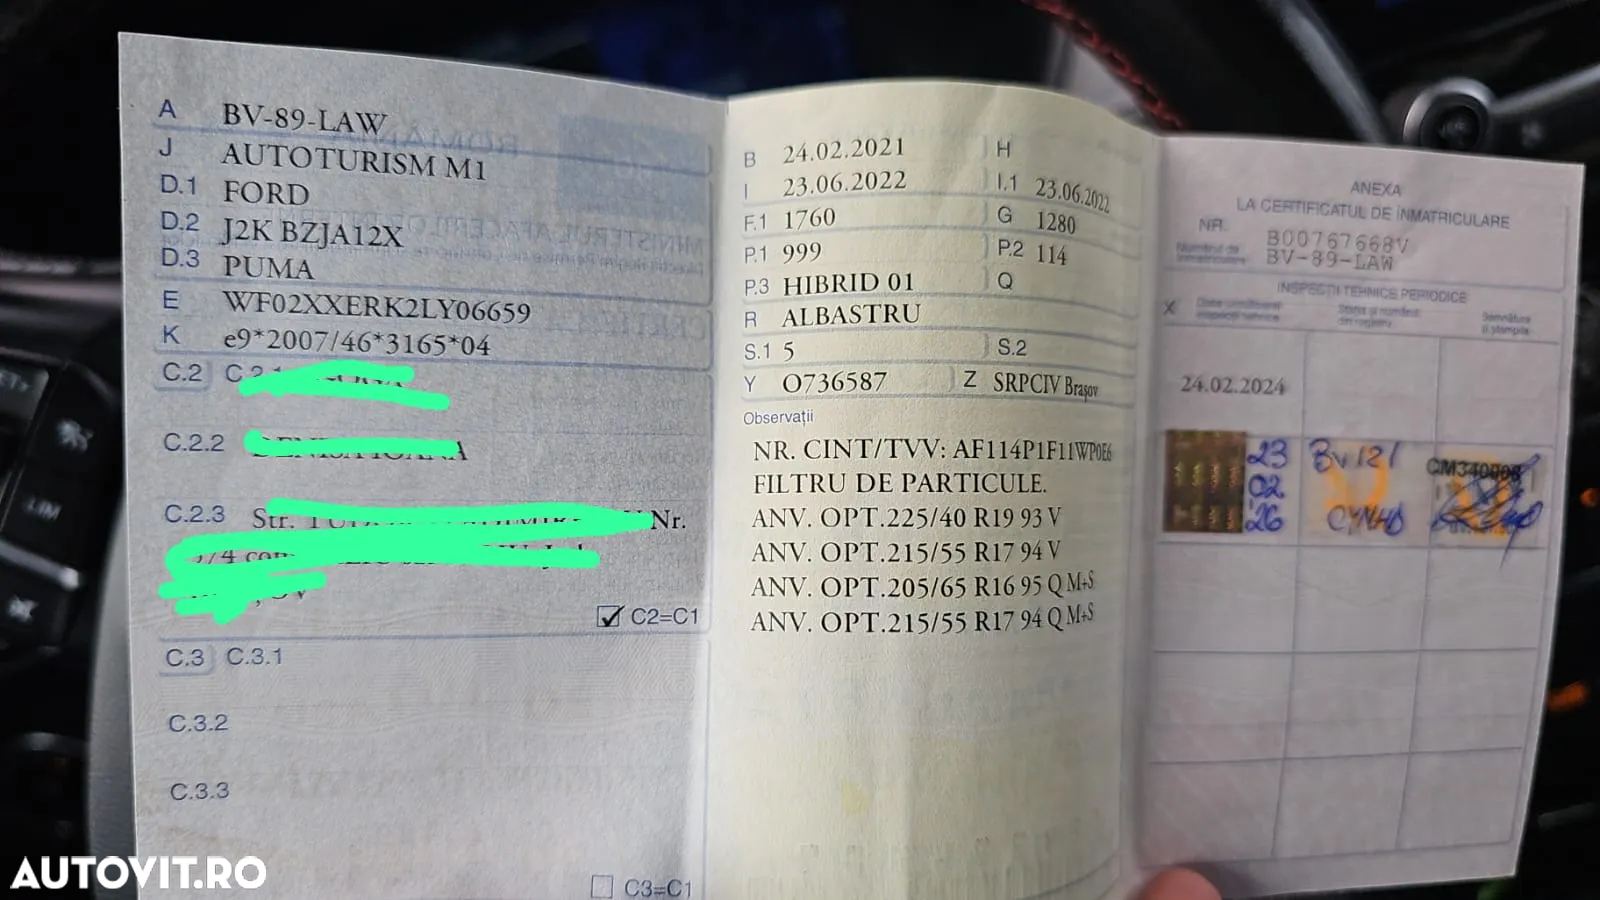 A BV-89-LAW
J AUTOTURISM M1
D.1 FORD
D.2 J2K BZJA12X
D.3 PUMA
E WF02XXERK2LY06659
K e9*2007/46*3165*04
C.2
C.2.2
C.2.3 Str. Nr.
☑ C2=C1
C.3 C.3.1
C.3.2
C.3.3
☐ C3=C1
B 24.02.2021 H
I 23.06.2022 I.1 23.06.2022
F.1 1760 G 1280
P.1 999 P.2 114
P.3 HIBRID 01 Q
R ALBASTRU
S.1 5 S.2
Y O736587 Z SRPCIV Brașov
Observații
NR. CINT/TVV: AF114P1F11WP0E6
FILTRU DE PARTICULE.
ANV. OPT.225/40 R19 93 V
ANV. OPT.215/55 R17 94 V
ANV. OPT.205/65 R16 95 Q M+S
ANV. OPT.215/55 R17 94 Q M+S
ANEXA
LA CERTIFICATUL DE ÎNMATRICULARE
NR. B00767668V
Numărul de înmatriculare BV-89-LAW
INSPECȚII TEHNICE PERIODICE
X
24.02.2024
23 BV 121
02
26
AUTOVIT.RO